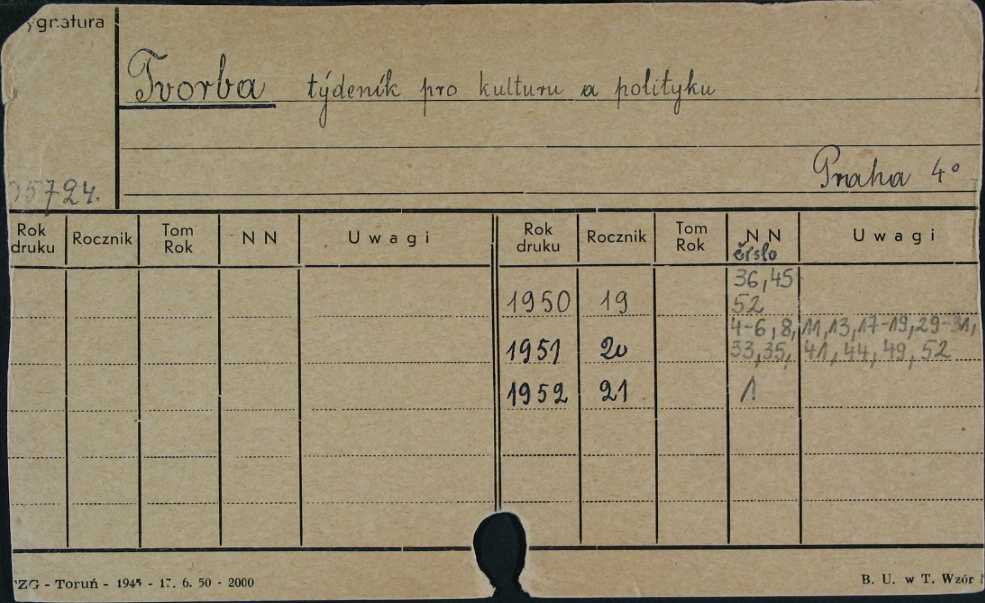 ygnatura
Tvorba týdeník pro kulturu a polityku
Praha 4°
05724.
Rok druku Rocznik Tom Rok N N Uwagi Rok druku Rocznik Tom Rok N N Uwagi
čislo
36, 45
1950 19 52
4-6, 8, 11, 13, 17-19, 29-31,
1951 20 33, 35, 41, 44, 49, 52
1952 21 1
ZG - Toruń - 1945 - 17. 6. 50 - 2000
B. U. w T. Wzór